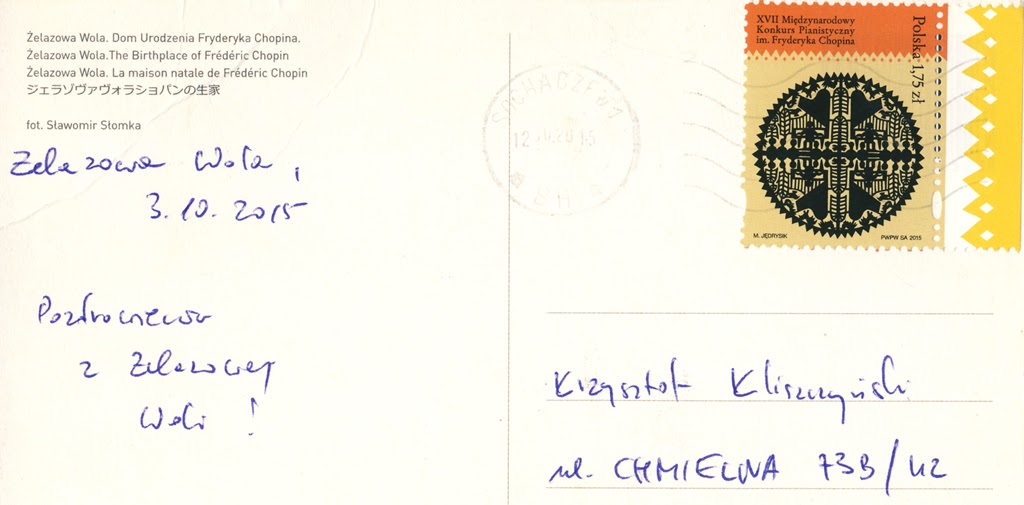 Żelazowa Wola. Dom Urodzenia Fryderyka Chopina.
Żelazowa Wola.The Birthplace of Frédéric Chopin
Żelazowa Wola. La maison natale de Frédéric Chopin
ジェラゾヴァヴォラショパンの生家
fot. Sławomir Słomka
Żelazowa Wola,
3.10.2015
Pozdrowienia
z Żelazowej
Woli!
XVII Międzynarodowy
Konkurs Pianistyczny
im. Fryderyka Chopina
Polska 1,75 zł
M. JĘDRYSIK
PWPW SA 2015
SOCHACZEW 1
Krzysztof Kliszczyński
ul. CHMIELNA 73B/42